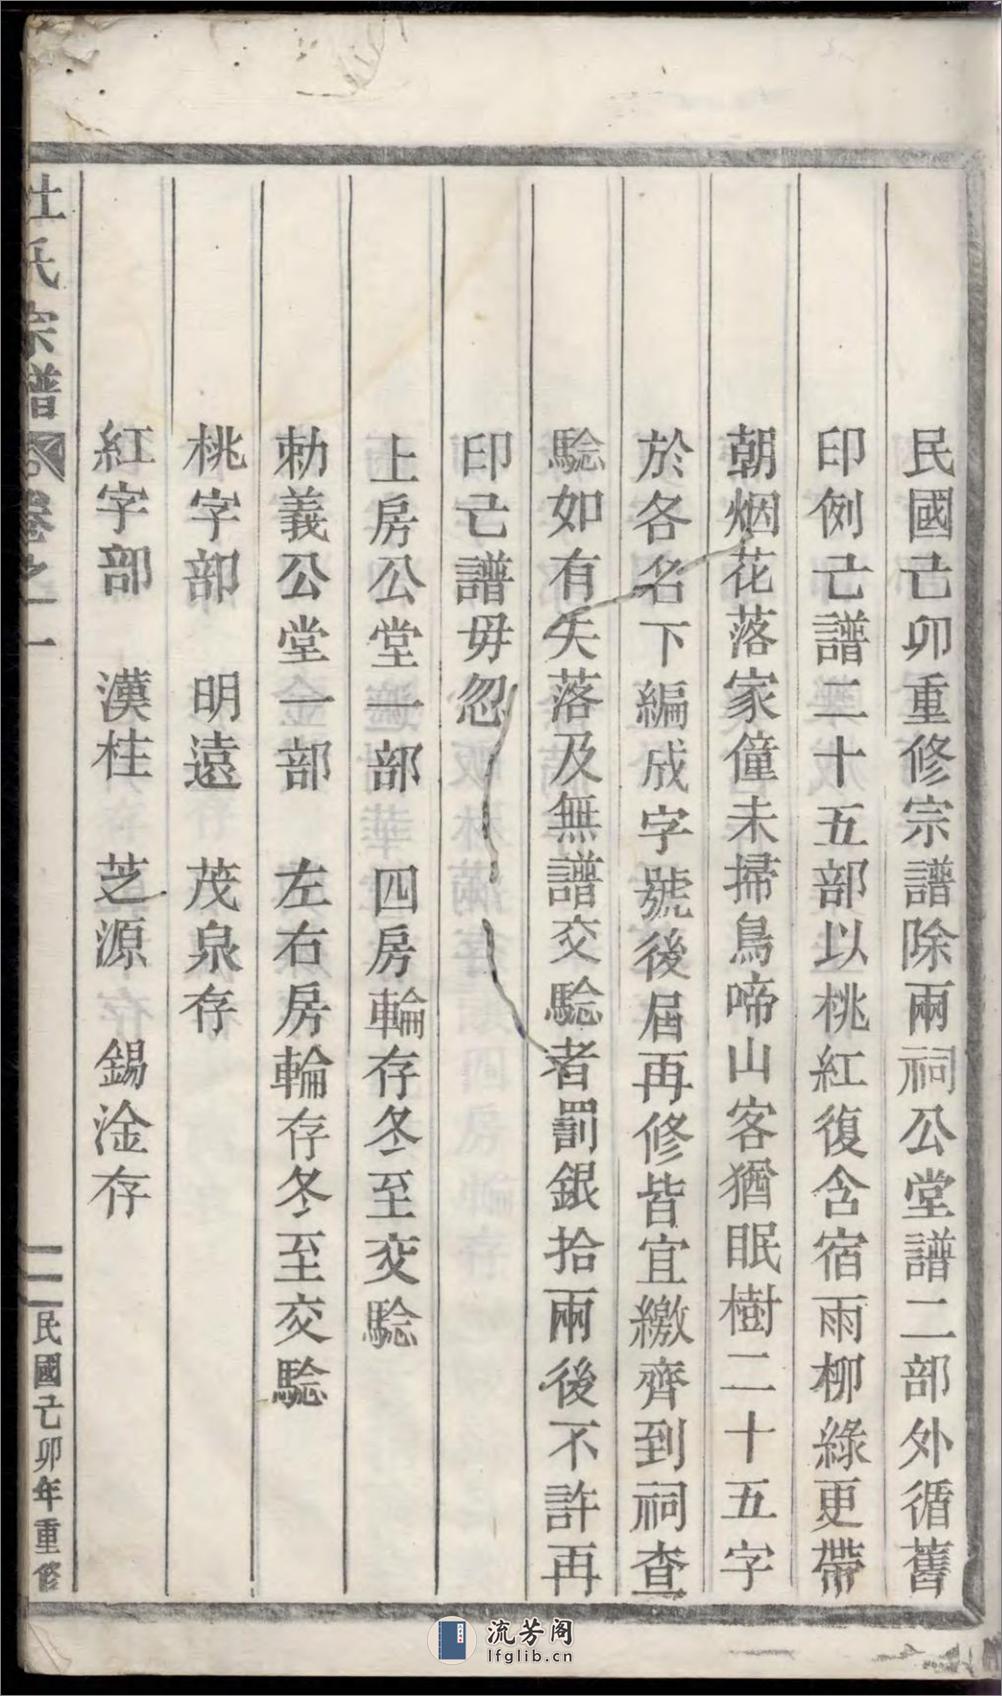 民國己卯重修宗譜除兩祠公堂譜二部外循舊
印例己譜二十五部以桃紅復含宿雨柳綠更帶
朝烟花落家僮未掃鳥啼山客猶眠樹二十五字
於各名下編成字號後屆再修皆宜繳齊到祠查
騐如有失落及無譜交騐者罰銀拾兩後不許再
印己譜毋忽
上房公堂一部 四房輪存冬至交騐
勅義公堂一部 左右房輪存冬至交騐
桃字部 明遠 茂泉存
紅字部 漢桂 芝源存 錫淦存
杜氏宗譜 卷之一 二 民國己卯年重修
流芳阁
lfglib.cn